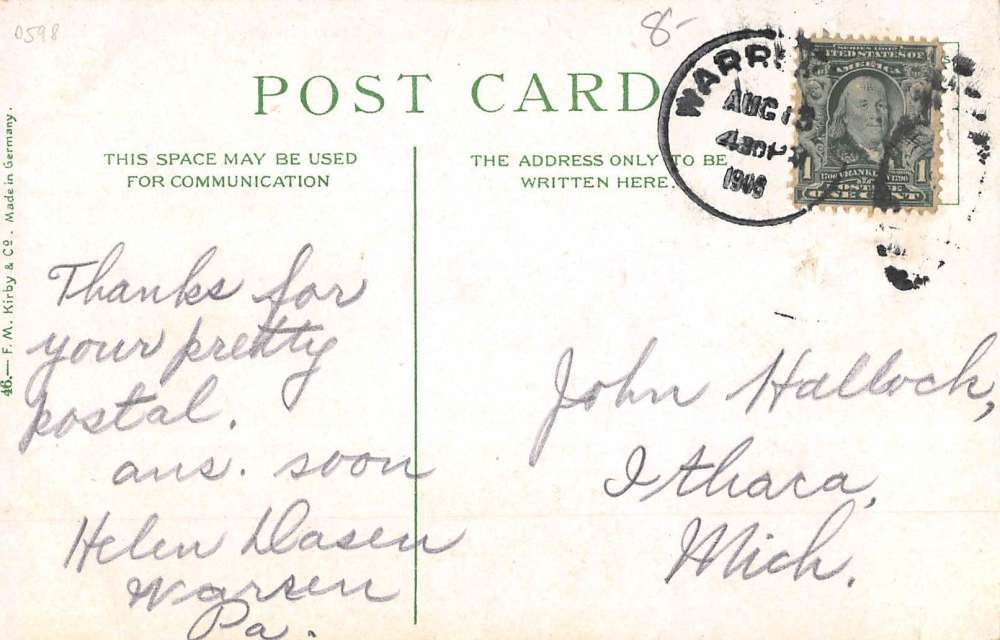 0598
8-
POST CARD
THIS SPACE MAY BE USED
FOR COMMUNICATION
THE ADDRESS ONLY TO BE
WRITTEN HERE.
WARR
AUG
430P
1908
SERIES 1902
UNITED STATES OF
AMERICA
1706 FRANKLIN 1790
1 1
POSTAGE
ONE CENT
46.— F. M. Kirby & Co. Made in Germany.
Thanks for
your pretty
postal.
ans. soon
Helen Dasen
Warren
Pa.
John Hallock,
Ithaca,
Mich.